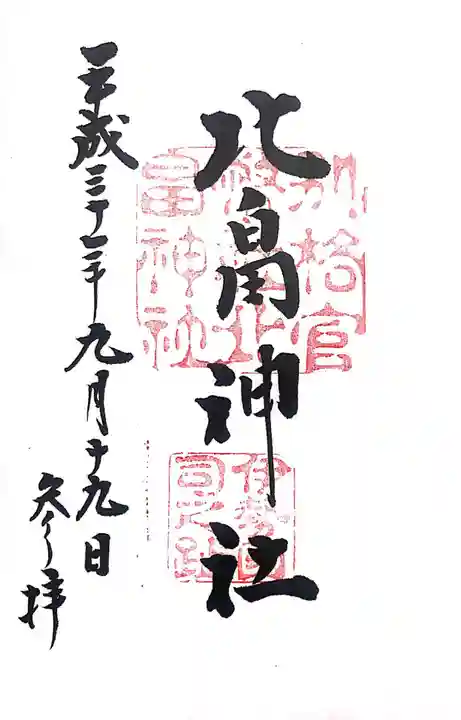 北畠神社
別格官
幣社北
畠神社
伊勢国
平成三十年九月十九日
参拝